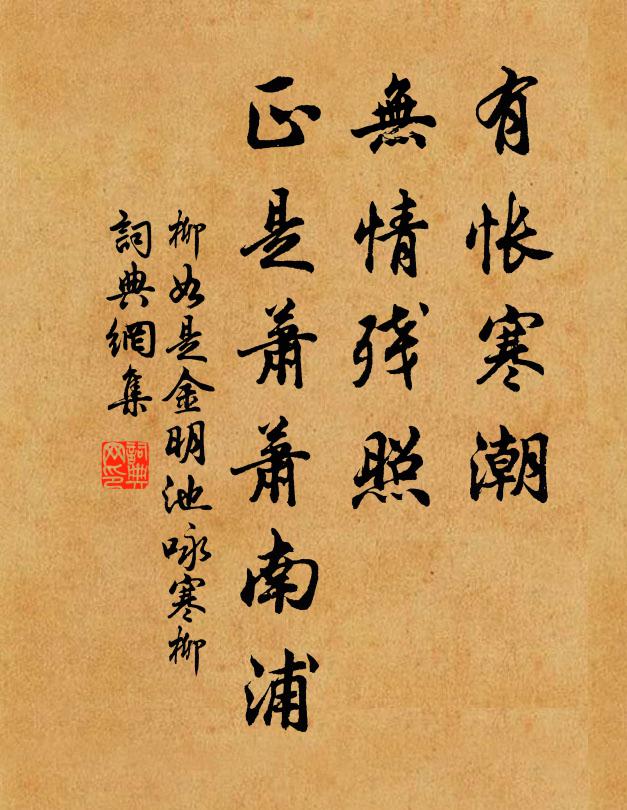 有悵寒潮
無情殘照
正是蕭蕭南浦
柳如是金明池咏寒柳
詞典網集
詞典网印